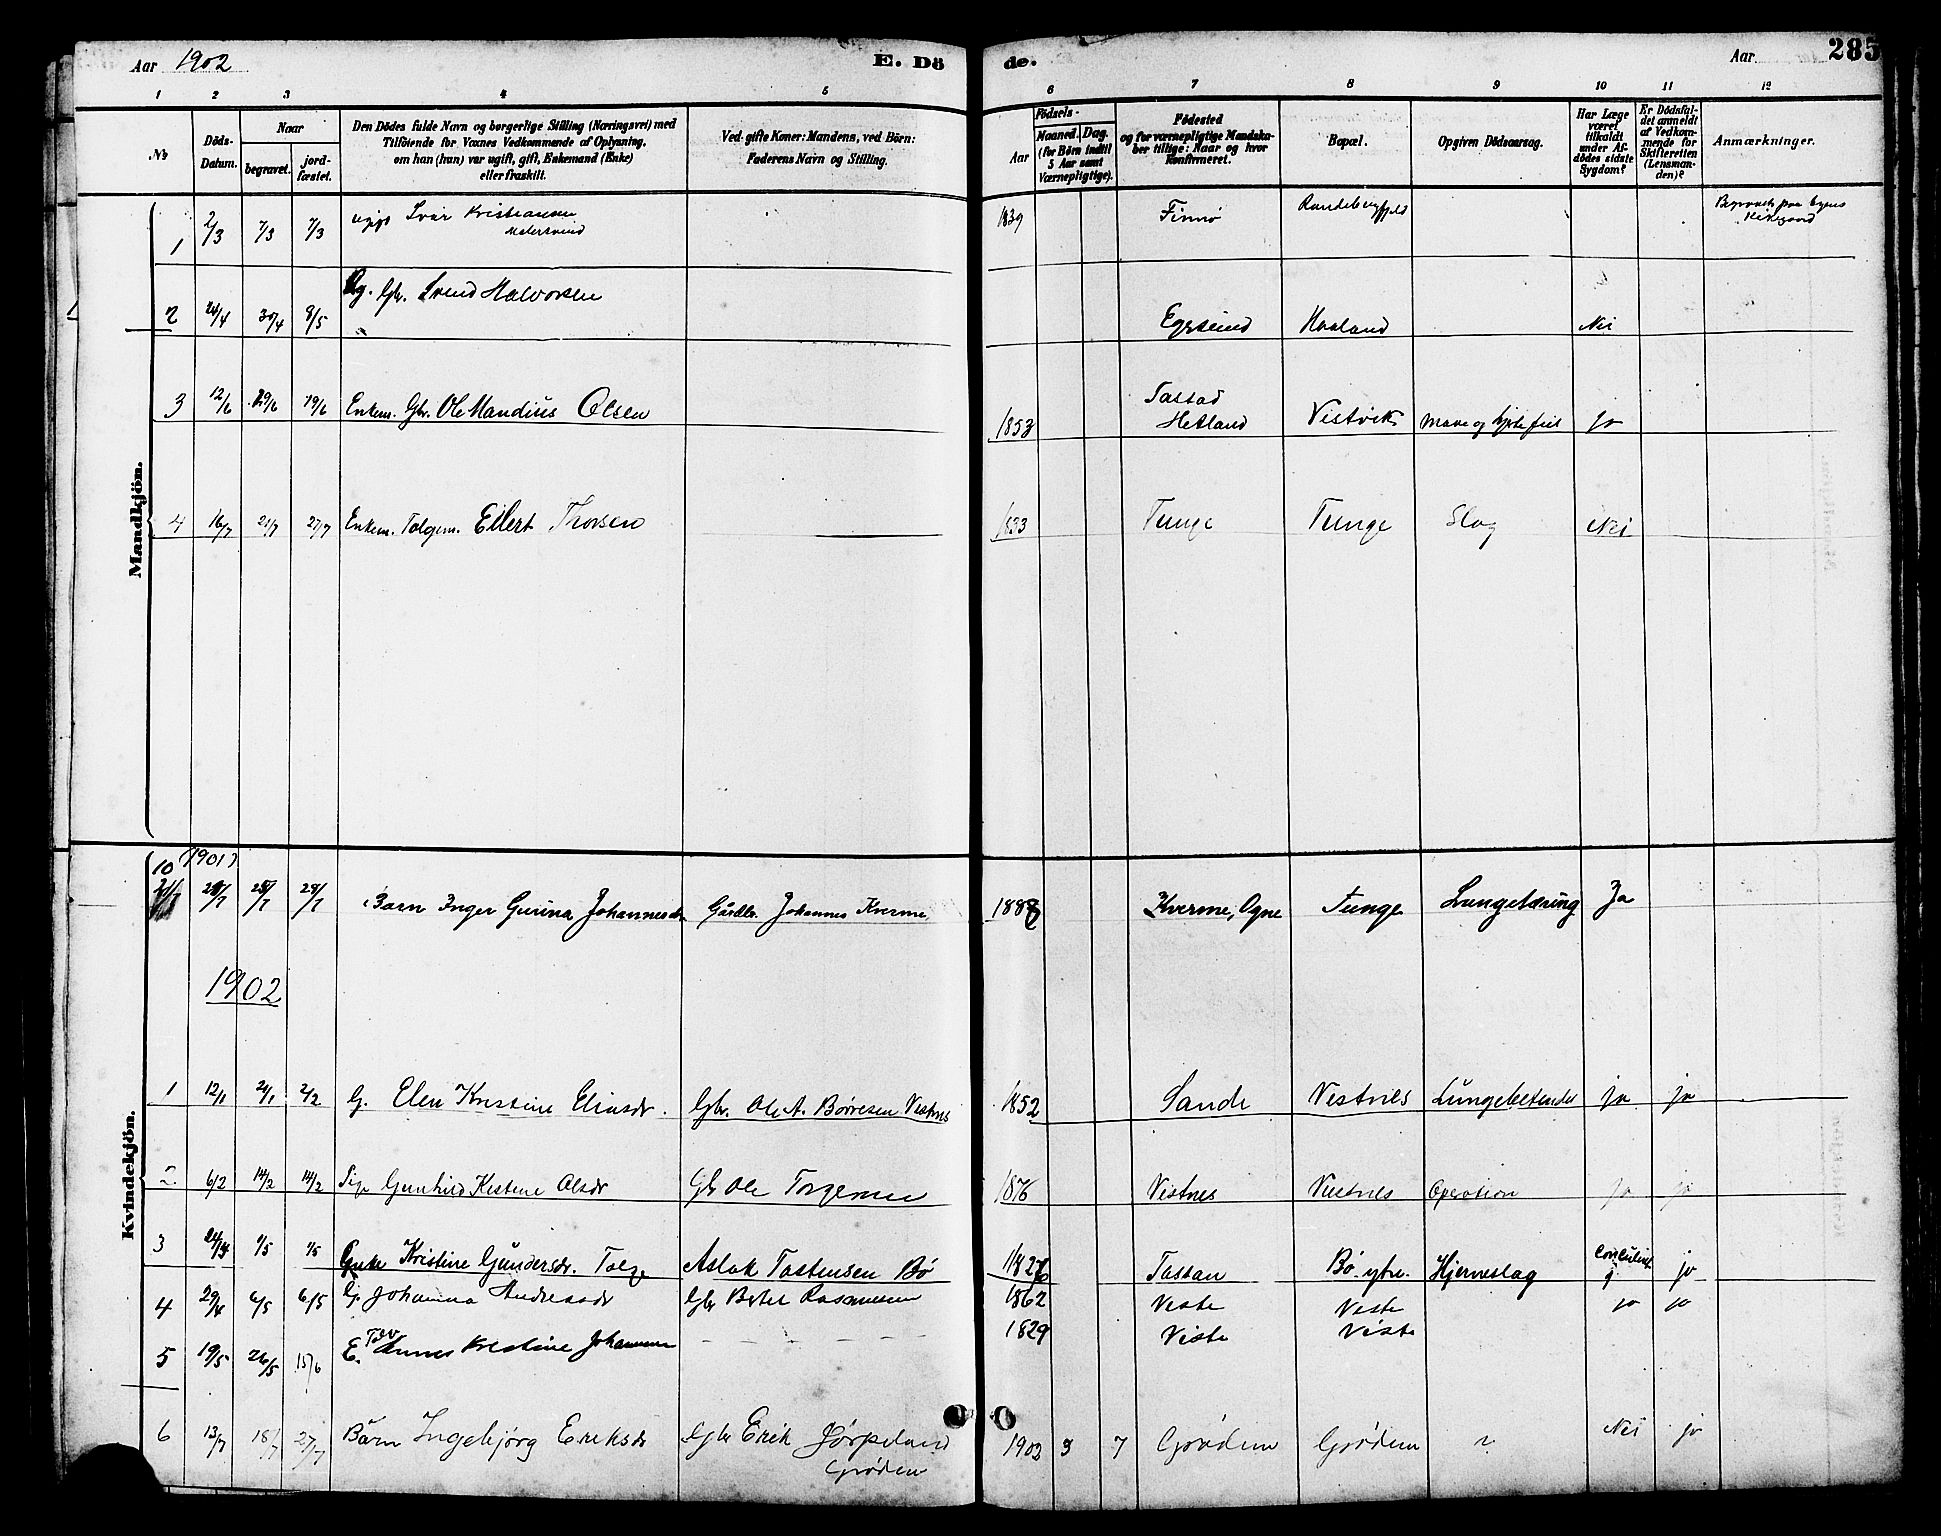 Aar 1902
E. Dö
de.
Aar
285
1 2 3 4 5 6 7 8 9 10 11 12
№
Döds-
Datum.
Naar
begravet.
jord-
fæstet.
Den Dödes fulde Navn og borgerlige Stilling (Næringsvei) med
Tilföiende for Voxnes Vedkommende af Oplysning,
om han (hun) var ugift, gift, Enkemand (Enke)
eller fraskilt.
Ved gifte Koner: Mandens, ved Börn:
Faderens Navn og Stilling.
Födsels-
Aar
Maaned.
Dag.
(for Börn indtil
5 Aar samt
Værnepligtige).
Födested
og for værnepligtige Mandska-
ber tillige: Naar og hvor
Konfirmeret.
Bopæl.
Opgiven Dödsaarsag.
Har Læge
været
tilkaldt
under Af-
dödes sidste
Sygdom?
Er Dödsfal-
det anmeldt
af Vedkom-
mende for
Skifteretten
(Lensman-
den)?
Anmærkninger.
Mandkjön.
1 2/3 7/3 7/3 Ivar Kristiansen 1839 Finnø Randebergfjeld Begravet paa byens
Kirkegaard
2 24/4 30/4 8/5 Ug. Gbr. Svend Halvorsen Egesund Haaland Nei
3 12/6 19/6 19/6 Enkem. Gbr. Ole Mandius Olsen 1853 Tastad
Hetland Vistvik Mave og hjertefeil jo
4 16/7 21/7 27/7 Enkem. Folgem. Eilert Thorsen 1833 Tunge Tunge Slag Nei
Kvindekjön.
10 (1901)
25/7 28/7 Barn Inger Gurina Johannesdr. Gårdbr. Johannes Kverme, 1888 Kverme, Ogne Tunge Lungetæring Ja
1902
1 12/1 21/1 2/2 G. Elen Kristine Eliasdr. Gbr. Ole A. Børresen Vistnes 1852 Sande Vistnes Lungebetændel jo jo
2 6/2 14/2 14/2 Pige Gunhild Kristine Olsdr Gbr Ole Torgersen 1876 Vistnes Vistnes Operation jo jo
3 1/5 1/5 Enke Kristine Gundersdr. Aslak Tostensen Bø 1827 Tastan Bø ytre. Hjerneslag jo
4 29/4 6/5 6/5 G. Johanna Andreasdr Gbr Bertel Rasmussen 1862 Viste Viste jo jo
5 19/5 26/5 15/6 E. Kristine Johannesen 1829 Viste Viste
6 13/7 18/7 27/7 Barn Ingebjørg Eriksdr Gbr Erik Jørpeland
Grødem 1902 3 7 Grødem Grødem ? Nei jo